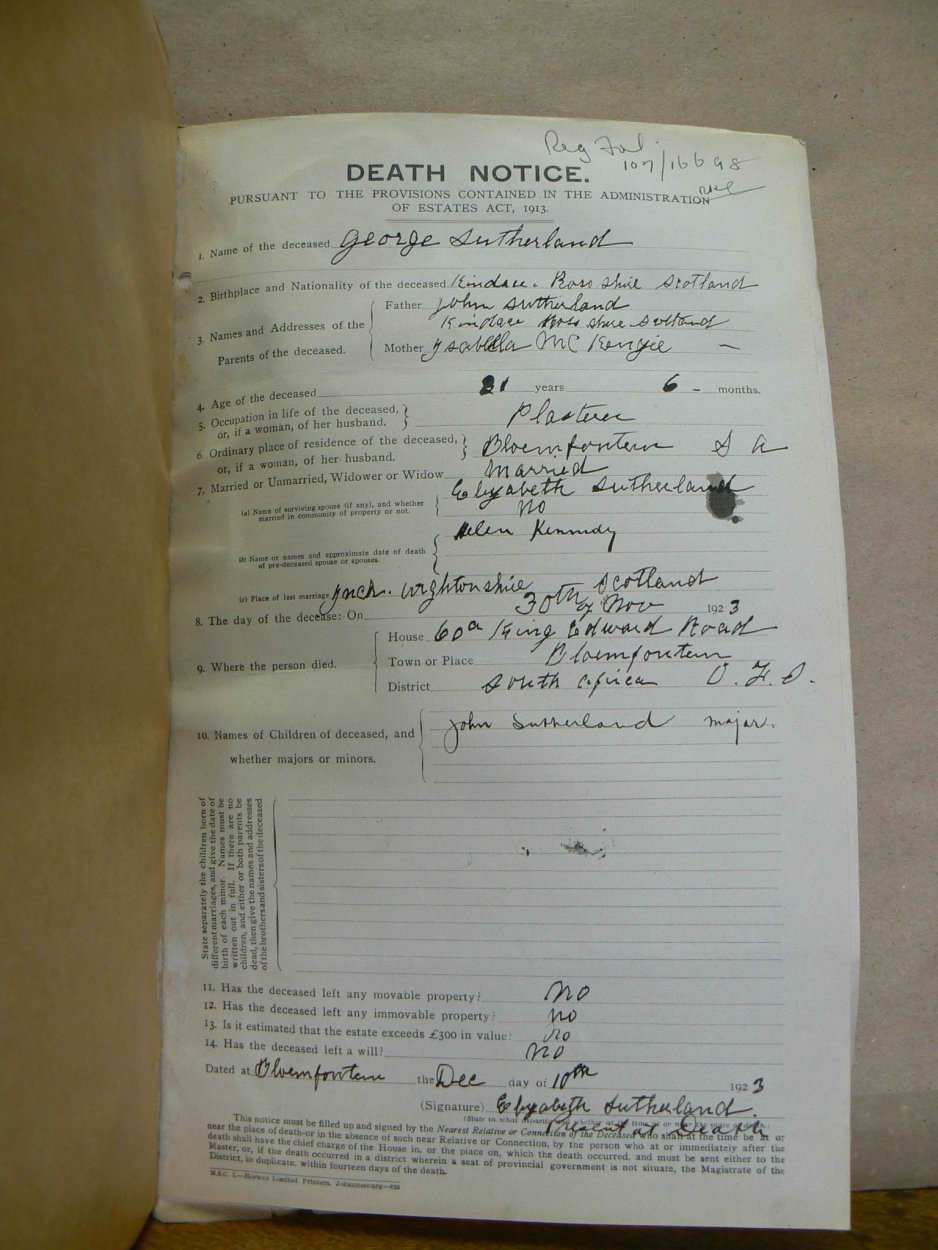 Reg
107/16698
DEATH NOTICE.
PURSUANT TO THE PROVISIONS CONTAINED IN THE ADMINISTRATION
OF ESTATES ACT, 1913.
1. Name of the deceased George Sutherland
2. Birthplace and Nationality of the deceased Kindace. Ross shire Scotland
3. Names and Addresses of the Parents of the deceased.
Father John Sutherland
Kindace Ross shire Scotland
Mother Ysabella McKenzie —
4. Age of the deceased 81 years 6 - months.
5. Occupation in life of the deceased,
or, if a woman, of her husband. } Plasterer
6. Ordinary place of residence of the deceased,
or, if a woman, of her husband. } Bloemfontein S A
7. Married or Unmarried, Widower or Widow Married
(a) Name of surviving spouse (if any), and whether
married in community of property or not. { Elizabeth Sutherland
no
(b) Name or names and approximate date of death
of pre-deceased spouse or spouses. { Helen Kennedy
(c) Place of last marriage Ynch. Wightonshire Scotland
8. The day of the decease: On 30th of Nov 1923
9. Where the person died.
House 60a King Edward Road
Town or Place Bloemfontein
District South Africa O. F. S.
10. Names of Children of deceased, and
whether majors or minors.
John Sutherland major.
State separately the children born of
different marriages, and give the date of
birth of each minor. Names must be
written out in full. If there are no
children, and either or both parents be
dead, then give the names and addresses
of the brothers and sisters of the deceased
11. Has the deceased left any movable property? No
12. Has the deceased left any immovable property? No
13. Is it estimated that the estate exceeds £300 in value? No
14. Has the deceased left a will? No
Dated at Bloemfontein the Dec day of 10th 1923
(Signature) Elizabeth Sutherland.
Present at death
This notice must be filled up and signed by the Nearest Relative or Connection of the Deceased who shall at the time be at or
near the place of death—or in the absence of such near Relative or Connection, by the person who at or immediately after the
death shall have the chief charge of the House in, or the place on, which the death occurred, and must be sent either to the
Master, or, if the death occurred in a district wherein a seat of provincial government is not situate, the Magistrate of the
District, in duplicate, within fourteen days of the death.
Hortors Limited Printers, Johannesburg